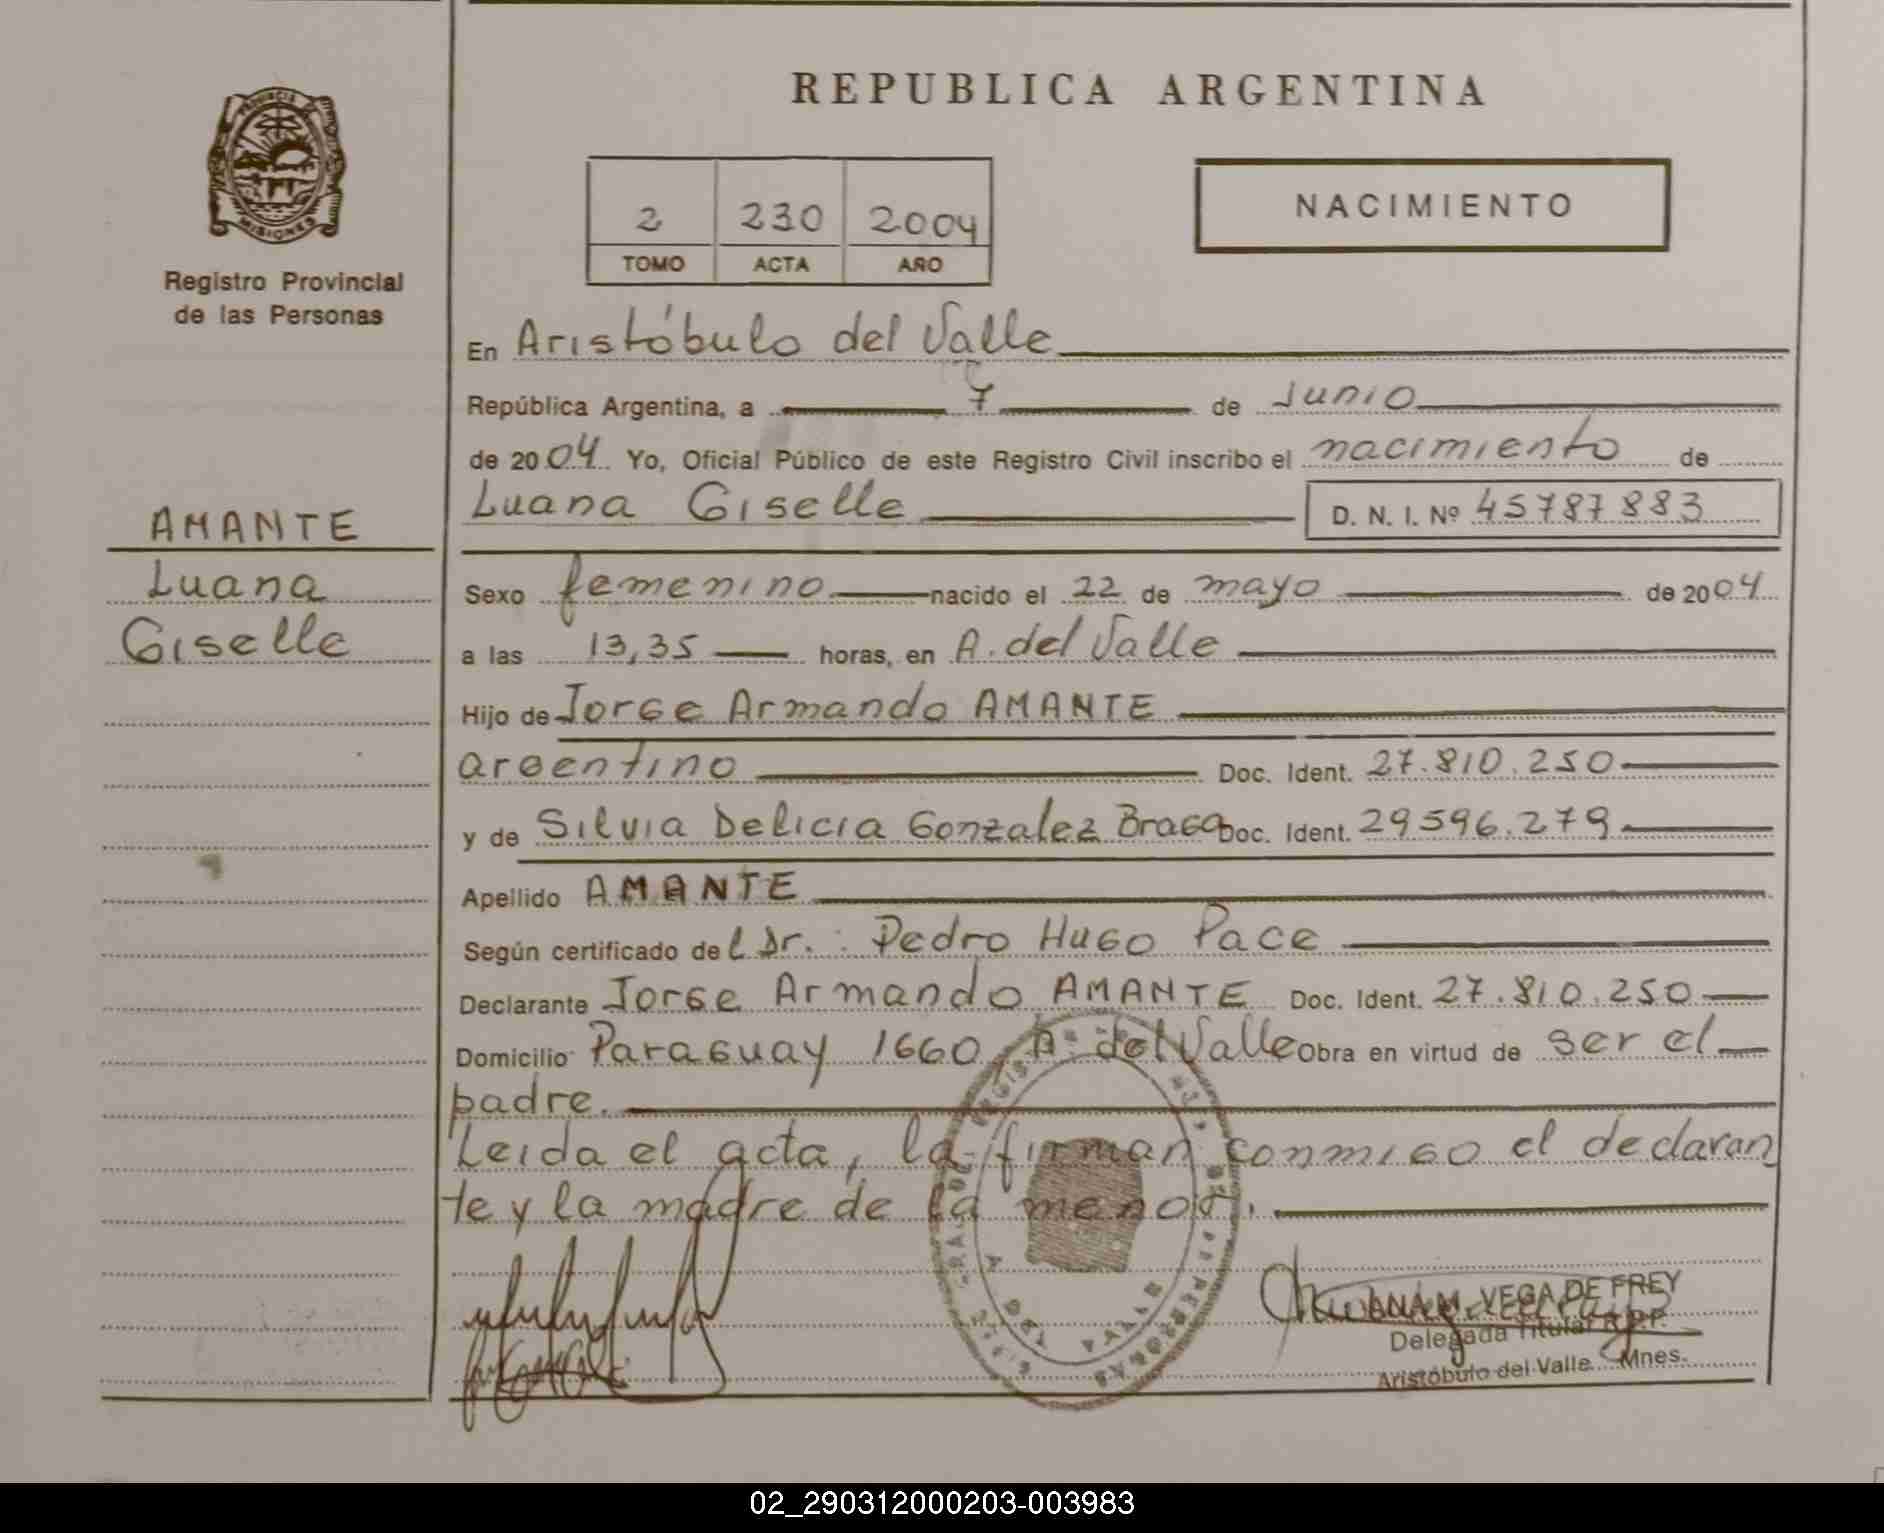 REPUBLICA ARGENTINA
PROVINCIA DE
MISIONES
Registro Provincial
de las Personas
2 230 2004
TOMO ACTA AÑO
NACIMIENTO
En Aristóbulo del Valle
República Argentina, a 7 de Junio
de 2004. Yo, Oficial Público de este Registro Civil inscribo el nacimiento de
Luana Giselle D. N. I. Nº 45787883
AMANTE
Luana
Giselle
Sexo femenino nacido el 22 de mayo de 2004
a las 13,35 horas, en A. del Valle
Hijo de Jorge Armando AMANTE
argentino Doc. Ident. 27.810.250
y de Silvia Delicia Gonzalez Braga Doc. Ident. 29596.279
Apellido AMANTE
Según certificado del Dr.: Pedro Hugo Pace
Declarante Jorge Armando AMANTE Doc. Ident. 27.810.250
Domicilio Paraguay 1660, A. del Valle Obra en virtud de ser el
padre.
Leida el acta, la firman conmigo el declaran
te y la madre de la menor.
ANA M. VEGA DE FREY
Delegada Titular R.P.P.
Aristóbulo del Valle Mnes.
02_290312000203-003983